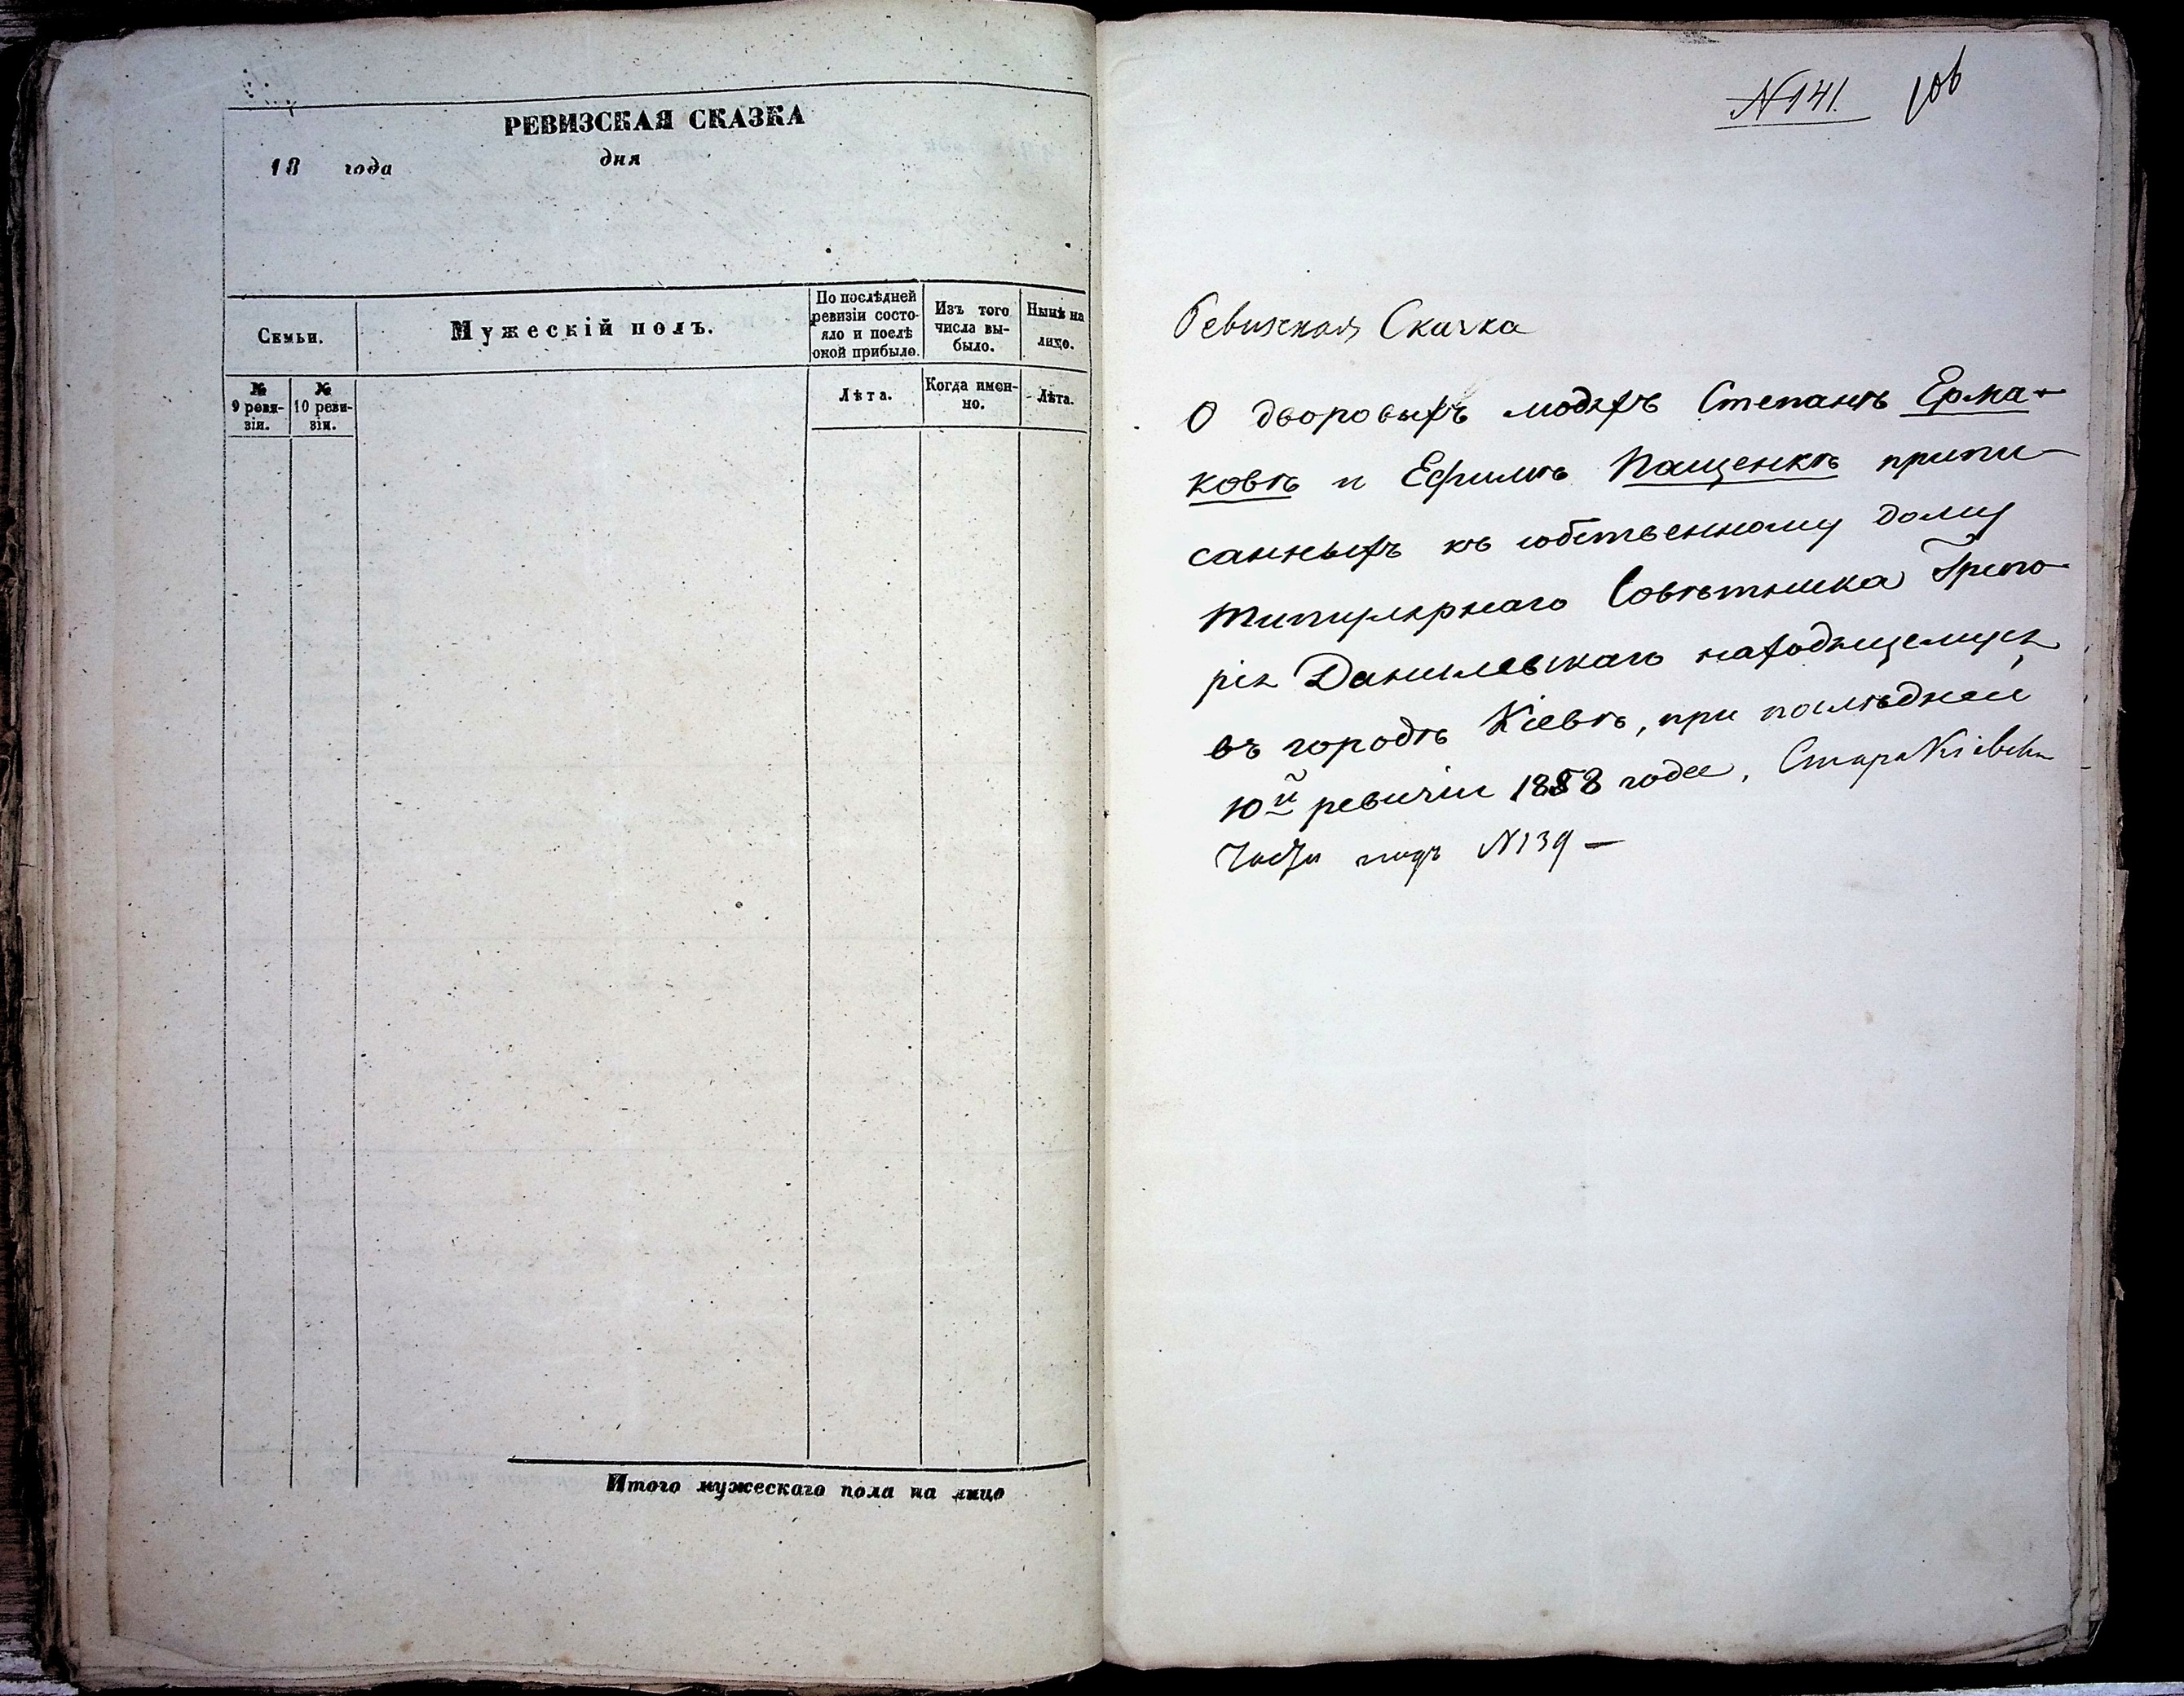 РЕВИЗСКАЯ СКАЗКА
18 года дня
Семьи.
Мужескій полъ.
По послѣдней
ревизіи состо-
яло и послѣ
оной прибыло.
Изъ того
числа вы-
было.
Нынѣ на
лицо.
№
9 реви-
зіи.
№
10 реви-
зіи.
Лѣта.
Когда имен-
но.
Лѣта.
Итого мужескаго пола на лицо
№ 141. 106
Ревизская Сказка
О дворовыхъ людяхъ Степанѣ Ерма-
ковѣ и Ефимѣ Пащенкѣ припи-
санныхъ къ собственному дому
титулярнаго Совѣтника Григо-
рія Данилевскаго находящемуся
въ городѣ Кіевѣ, при послѣдней
10й ревизіи 1858 года, СтароКіевск
части подъ №139 —